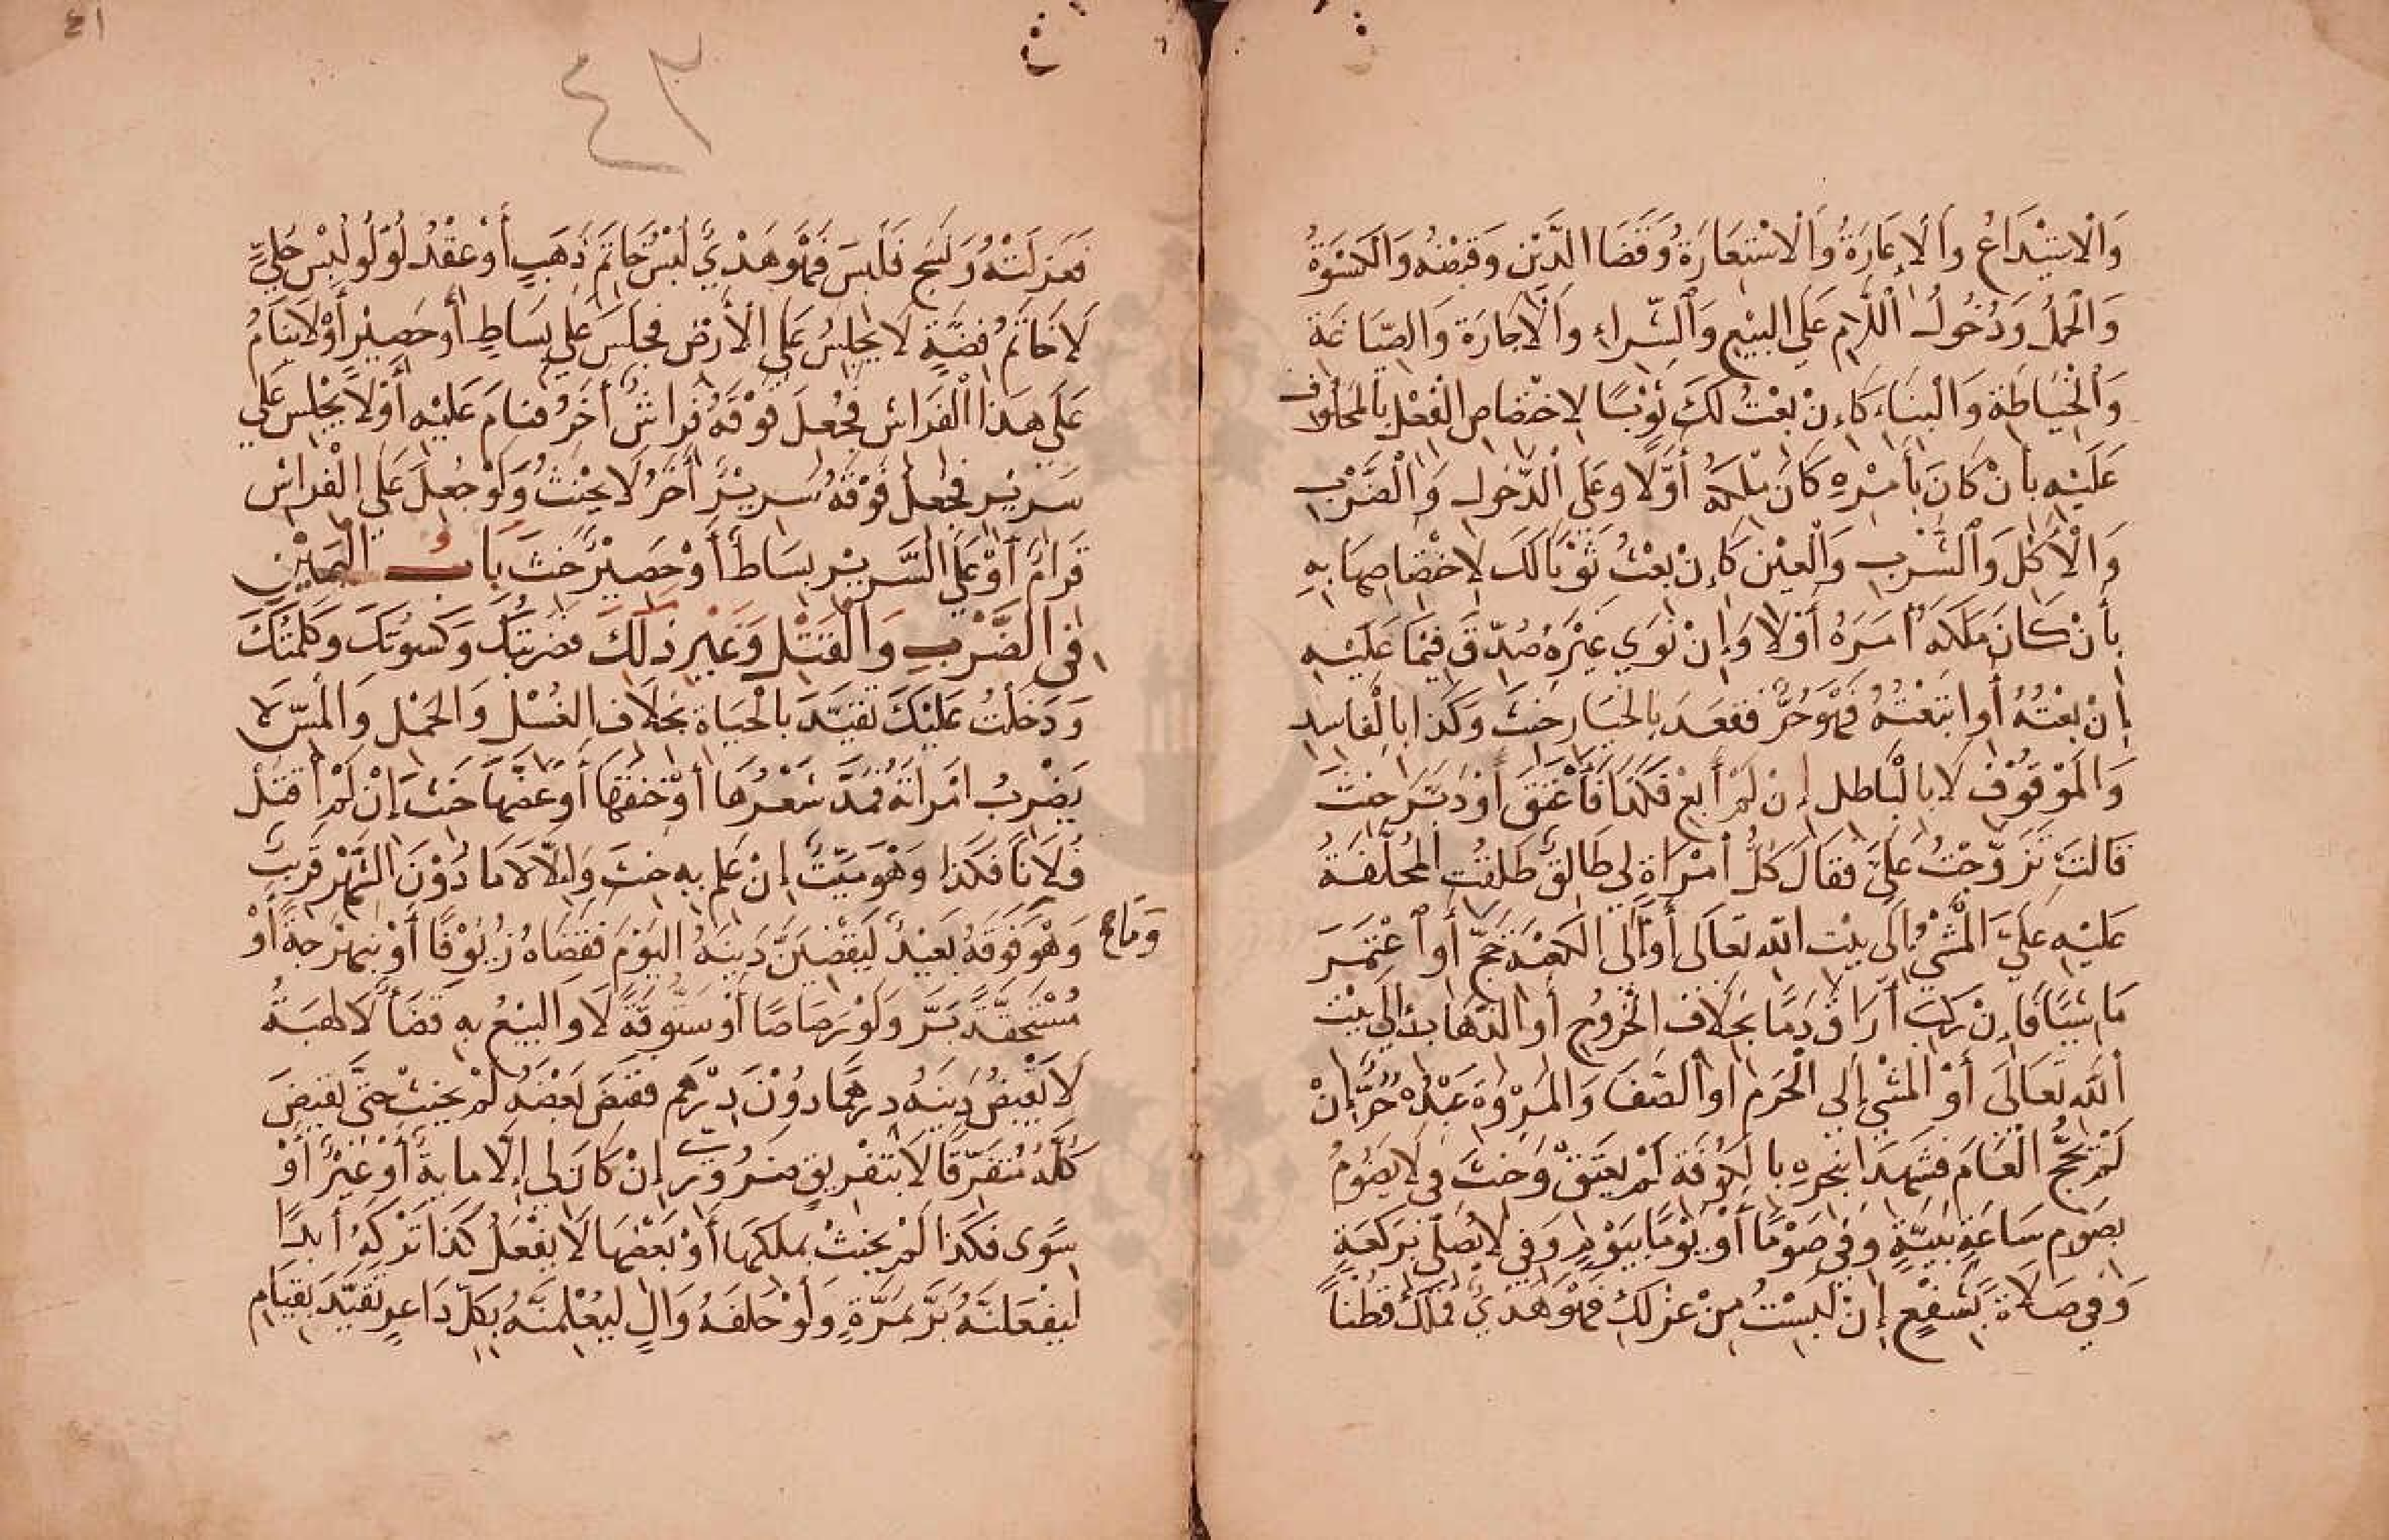 وَالْاسْتِيْدَاعُ وَالْإِعَارَةُ وَالْاسْتِعَارَةُ وَقَضَا الدَّيْنِ وَقَبْضُهُ وَالْكِسْوَةُ
وَالْحَمْلُ وَدُخُولُ اللَّامِ عَلَى الْبَيْعِ وَالشِّرَاءِ وَالْاجَارَةِ وَالصِّيَاغَةِ
وَالْخِيَاطَةِ وَالْبِنَاءِ كَإِنْ بِعْتُ لَكَ ثَوْبًا لِاخْتِصَاصِ الْفِعْلِ بِالْمَحْلُوفِ
عَلَيْهِ بِأَنْ كَانَ بِأَمْرِهِ كَانَ مَلَكَهُ أَوَّلًا وَعَلَى الدُّخُولِ وَالضَّرْبِ
وَالْأَكْلِ وَالشُّرْبِ وَالْعَيْنِ كَإِنْ بِعْتُ ثَوْبًا لَكَ لِاخْتِصَاصِهَا بِهِ
بِأَنْ كَانَ مَلَكَهُ أَمَرَهُ أَوْلَا وَإِنْ نَوَى غَيْرَهُ صُدِّقَ فِيْمَا عَلَيْهِ
إِنْ بِعْتُهُ أَوِ ابْتَعْتُهُ فَهُوَ حُرٌّ فَعَقَدَ بِالْخِيَارِ حَنِثَ وَكَذَا بِالْفَاسِدِ
وَالْمَوْقُوْفِ لَا بِالْبَاطِلِ إِنْ لَمْ أَبِعْ فَكَذَا فَأَعْتَقَ أَوْ دَبَّرَ حَنِثَ
قَالَتْ تَزَوَّجْتُ عَلَيَّ فَقَالَ كُلُّ امْرَأَةٍ لِي طَالِقٌ طَلُقَتِ الْمُحَلِّفَةُ
عَلَيْهِ عَلَيَّ الْمَشْيُ إِلَى بَيْتِ اللهِ تَعَالَى أَوْ إِلَى الْكَعْبَةِ حَجَّ أَوِ اعْتَمَرَ
مَاشِيًا فَإِنْ رَكِبَ أَرَاقَ دَمًا بِخِلَافِ الْخُرُوجِ أَوِ الذَّهَابِ إِلَى بَيْتِ
اللهِ تَعَالَى أَوِ الْمَشْيِ إِلَى الْحَرَمِ أَوِ الصَّفَا وَالْمَرْوَةِ عَبْدُهُ حُرٌّ إِنْ
لَمْ يَحُجَّ الْعَامَ فَشَهِدَا بِنَحْرِهِ بِالْكُوْفَةِ لَمْ يَعْتِقْ وَحَنِثَ فِي لَا يَصُوْمُ
بِصَوْمِ سَاعَةٍ بِنِيَّةٍ وَفِي صَوْمًا أَوْ يَوْمًا بِيَوْمٍ وَفِي لَا يُصَلِّي بِرَكْعَةٍ
وَفِي صَلَاةً بِشَفْعٍ إِنْ لَبِسْتُ مِنْ غَزْلِكِ فَهُوَ هَدْيٌ فَمَلَكَ قُطْنًا
٤١
٤٣
فَغَزَلَتْهُ وَنُسِجَ فَلَبِسَ فَهُوَ هَدْيٌ لُبْسُ خَاتَمِ ذَهَبٍ أَوْ عِقْدِ لُؤْلُؤٍ لُبْسُ حُلِيٍّ
لَا خَاتَمُ فِضَّةٍ لَا يَجْلِسُ عَلَى الْأَرْضِ فَجَلَسَ عَلَى بِسَاطٍ أَوْ حَصِيْرٍ أَوْ لَا يَنَامُ
عَلَى هَذَا الْفِرَاشِ فَجُعِلَ فَوْقَهُ فِرَاشٌ أَخَرُ فَنَامَ عَلَيْهِ أَوْ لَا يَجْلِسُ عَلَى
سَرِيْرٍ فَجُعِلَ فَوْقَهُ سَرِيْرٌ أَخَرُ لَا يَحْنَثُ وَلَوْ جُعِلَ عَلَى الْفِرَاشِ
قِرَامٌ أَوْ عَلَى السَّرِيْرِ بِسَاطٌ أَوْ حَصِيْرٌ حَنِثَ بَابُ الْيَمِيْنِ
فِي الضَّرْبِ وَالْقَتْلِ وَغَيْرِ ذَلِكَ ضَرَبْتُكَ وَكَسَوْتُكَ وَكَلَّمْتُكَ
وَدَخَلْتُ عَلَيْكَ تَقَيَّدَ بِالْحَيَاةِ بِخِلَافِ الْغُسْلِ وَالْحَمْلِ وَالْمَسِّ لَا
يَضْرِبُ امْرَأَتَهُ فَمَدَّ شَعْرَهَا أَوْ خَنَقَهَا أَوْ عَضَّهَا حَنِثَ إِنْ لَمْ أَقْتُلْ
فُلَانًا فَكَذَا وَهُوَ مَيِّتٌ إِنْ عَلِمَ بِهِ حَنِثَ وَإِلَّا لَا مَا دُوْنَ الشَّهْرِ قَرِيبٌ
وَهُوَ فَوْقَهُ بَعِيْدٌ لَيَقْضِيَنَّ دَيْنَهُ الْيَوْمَ فَقَضَاهُ زُيُوْفًا أَوْ نَبَهْرَجَةً أَوْ
مُسْتَحَقَّةً بَرَّ وَلَوْ رَصَاصًا أَوْ سَتُّوقَةً لَا وَالْبَيْعُ بِهِ قَضَاءٌ لَا الْهِبَةُ
لَا يَقْبِضُ دَيْنَهُ دِرْهَمًا دُوْنَ دِرْهَمٍ فَقَبَضَ بَعْضَهُ لَمْ يَحْنَثْ حَتَّى يَقْبِضَ
كُلَّهُ مُتَفَرِّقًا لَا بِتَفْرِيقٍ ضَرُوْرِيٍّ إِنْ كَانَ لِي إِلَّا مِايَةٌ أَوْ غَيْرُ أَوْ
سِوَى فَكَذَا لَمْ يَحْنَثْ بِمِلْكِهَا أَوْ بَعْضِهَا لَا يَفْعَلُ كَذَا تَرَكَهُ أَبَدًا
لَيَفْعَلَنَّهُ بَرَّ بِمَرَّةٍ وَلَوْ حَلَّفَهُ وَالٍ لِيُعْلِمَنَّهُ بِكُلِّ دَاعِرٍ تَقَيَّدَ بِقِيَامِ